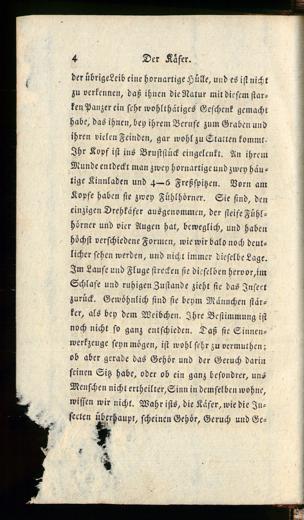 4 Der Käfer.
der übrige Leib eine hornartige Hülle, und es ist nicht
zu verkennen, daß ihnen die Natur mit diesem star-
ken Panzer ein sehr wohlthätiges Geschenk gemacht
habe, das ihnen, bey ihrem Berufe zum Graben und
ihren vielen Feinden, gar wohl zu Statten kommt.
Ihr Kopf ist ins Bruststück eingelenkt. An ihrem
Munde entdeckt man zwey hornartige und zwey häu-
tige Kinnladen und 4—6 Freßspitzen. Vorn am
Kopfe haben sie zwey Fühlhörner. Sie sind, den
einzigen Drehkäfer ausgenommen, der steife Fühl-
hörner und vier Augen hat, beweglich, und haben
höchst verschiedene Formen, wie wir balo noch deut-
licher sehen werden, und nicht immer dieselbe Lage.
Im Laufe und Fluge strecken sie dieselben hervor, im
Schlafe und ruhigen Zustande zieht sie das Insect
zurück. Gewöhnlich sind sie beym Männchen stär-
ker, als bey dem Weibchen. Ihre Bestimmung ist
noch nicht so ganz entschieden. Daß sie Sinnen-
werkzeuge seyn mögen, ist wohl sehr zu vermuthen;
ob aber gerade das Gehör und der Geruch darin
seinen Sitz habe, oder ob ein ganz besondrer, uns
Menschen nicht ertheilter, Sinn in demselben wohne,
wissen wir nicht. Wahr ists, die Käfer, wie die In-
secten überhaupt, scheinen Gehör, Geruch und Ge-